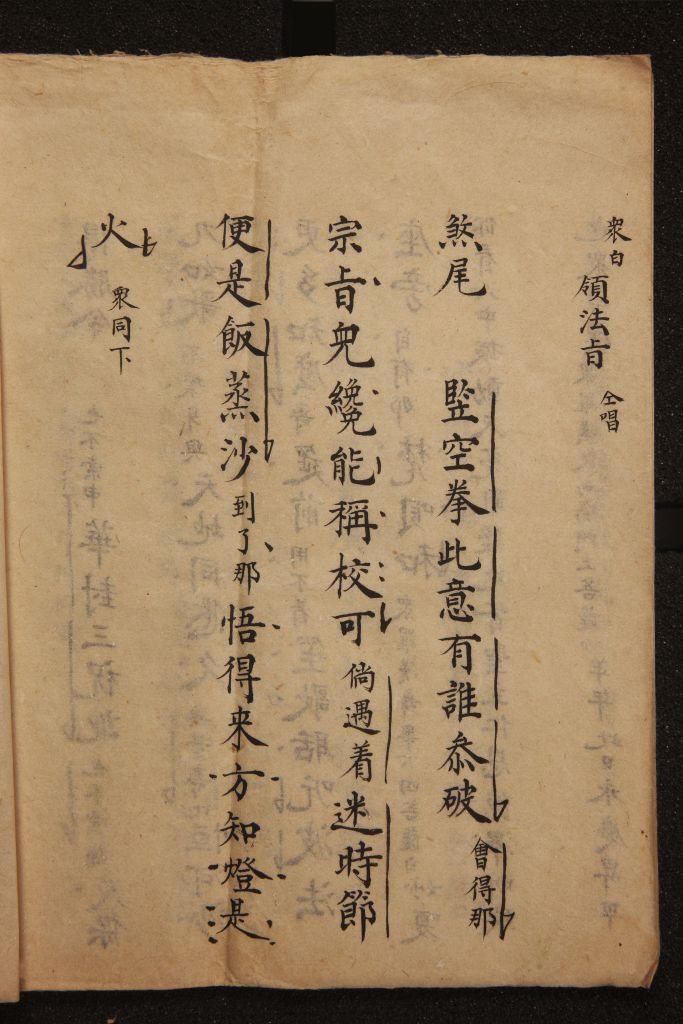 衆白 領法旨 仝唱
煞尾 竪空拳此意有誰叅破會得那
宗旨兒纔能稱校可倘遇着迷時節
便是飯蒸沙到了那悟得来方知燈是
火 衆同下